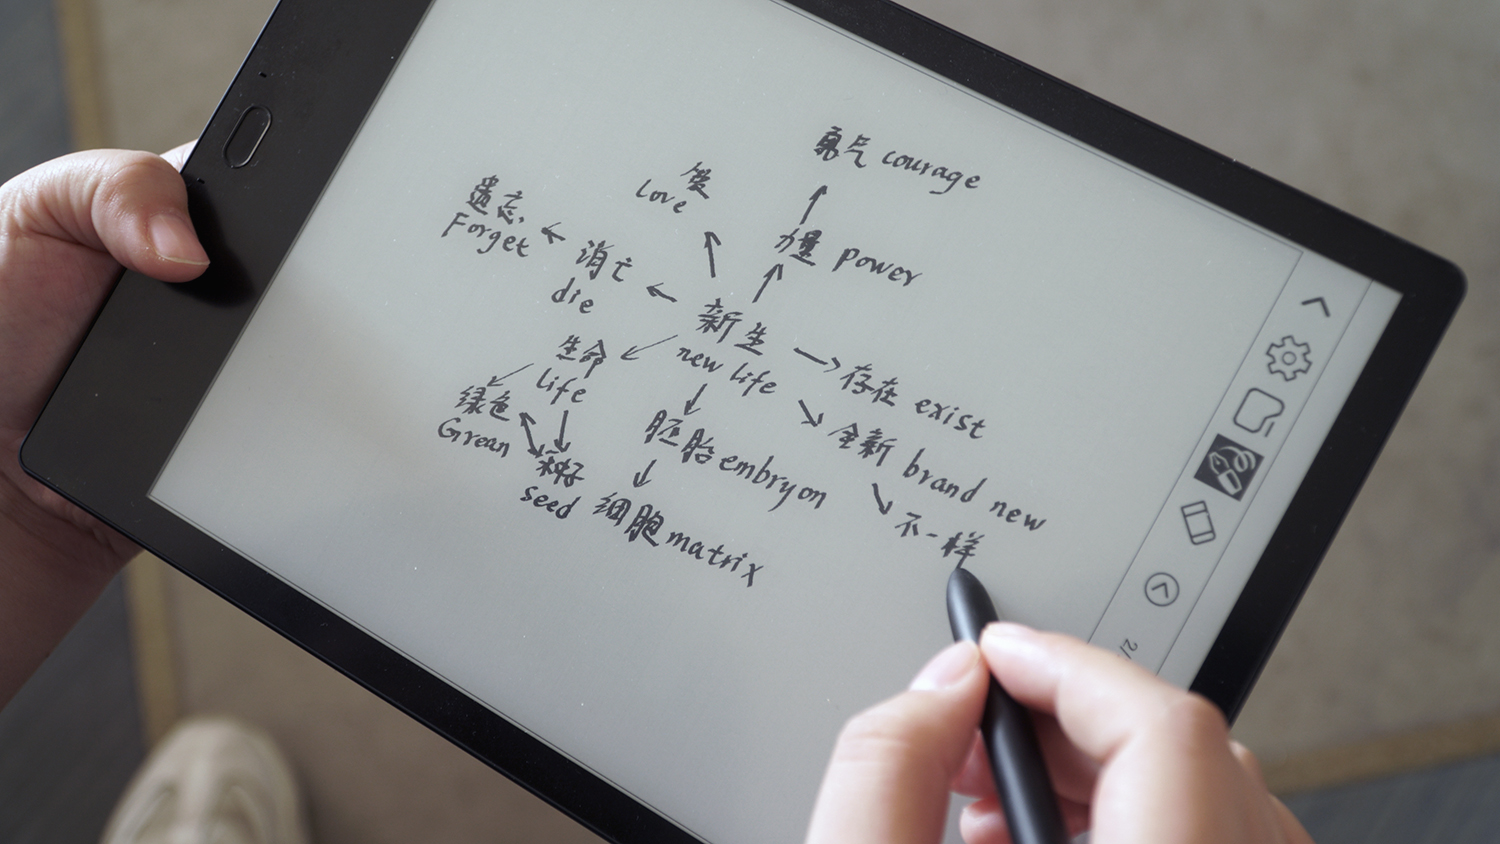 勇气 courage
爱
Love
力量 power
遗忘
Forget
消亡
die
新生
new life
生命
life
存在 exist
绿色
Grean
种籽
seed
胚胎 embryon
全新 brand new
细胞 matrix
不一样
2/